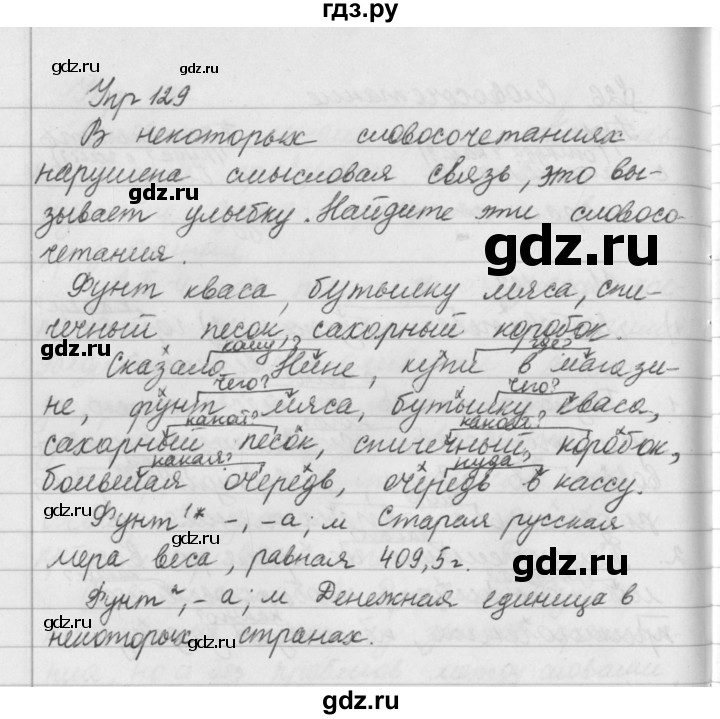 гдз.ру
gdz.ru
gdz.ru
Упр 129
В некоторых словосочетаниях
нарушена смысловая связь, это вы-
gdz.ru
зывает улыбку. Найдите эти словосо-
четания.
gdz.ru
Фунт кваса, бутылку мяса, спи-
чечный песок, сахарный коробок.
gdz.ru
кому? где?
Сказала Нине, купи в магази-
чего? чего?
не, фунт мяса, бутылку кваса,
какой? какой?
сахарный песок, спичечный коробок,
какая? куда
большая очередь, очередь в кассу.
gdz.ru
Фунт¹* -, -а; м Старая русская
мера веса, равная 409,5 г.
gdz.ru
Фунт², -а; м Денежная единица в
некоторых странах.
gdz.ru
gdz.ru
gdz.ru